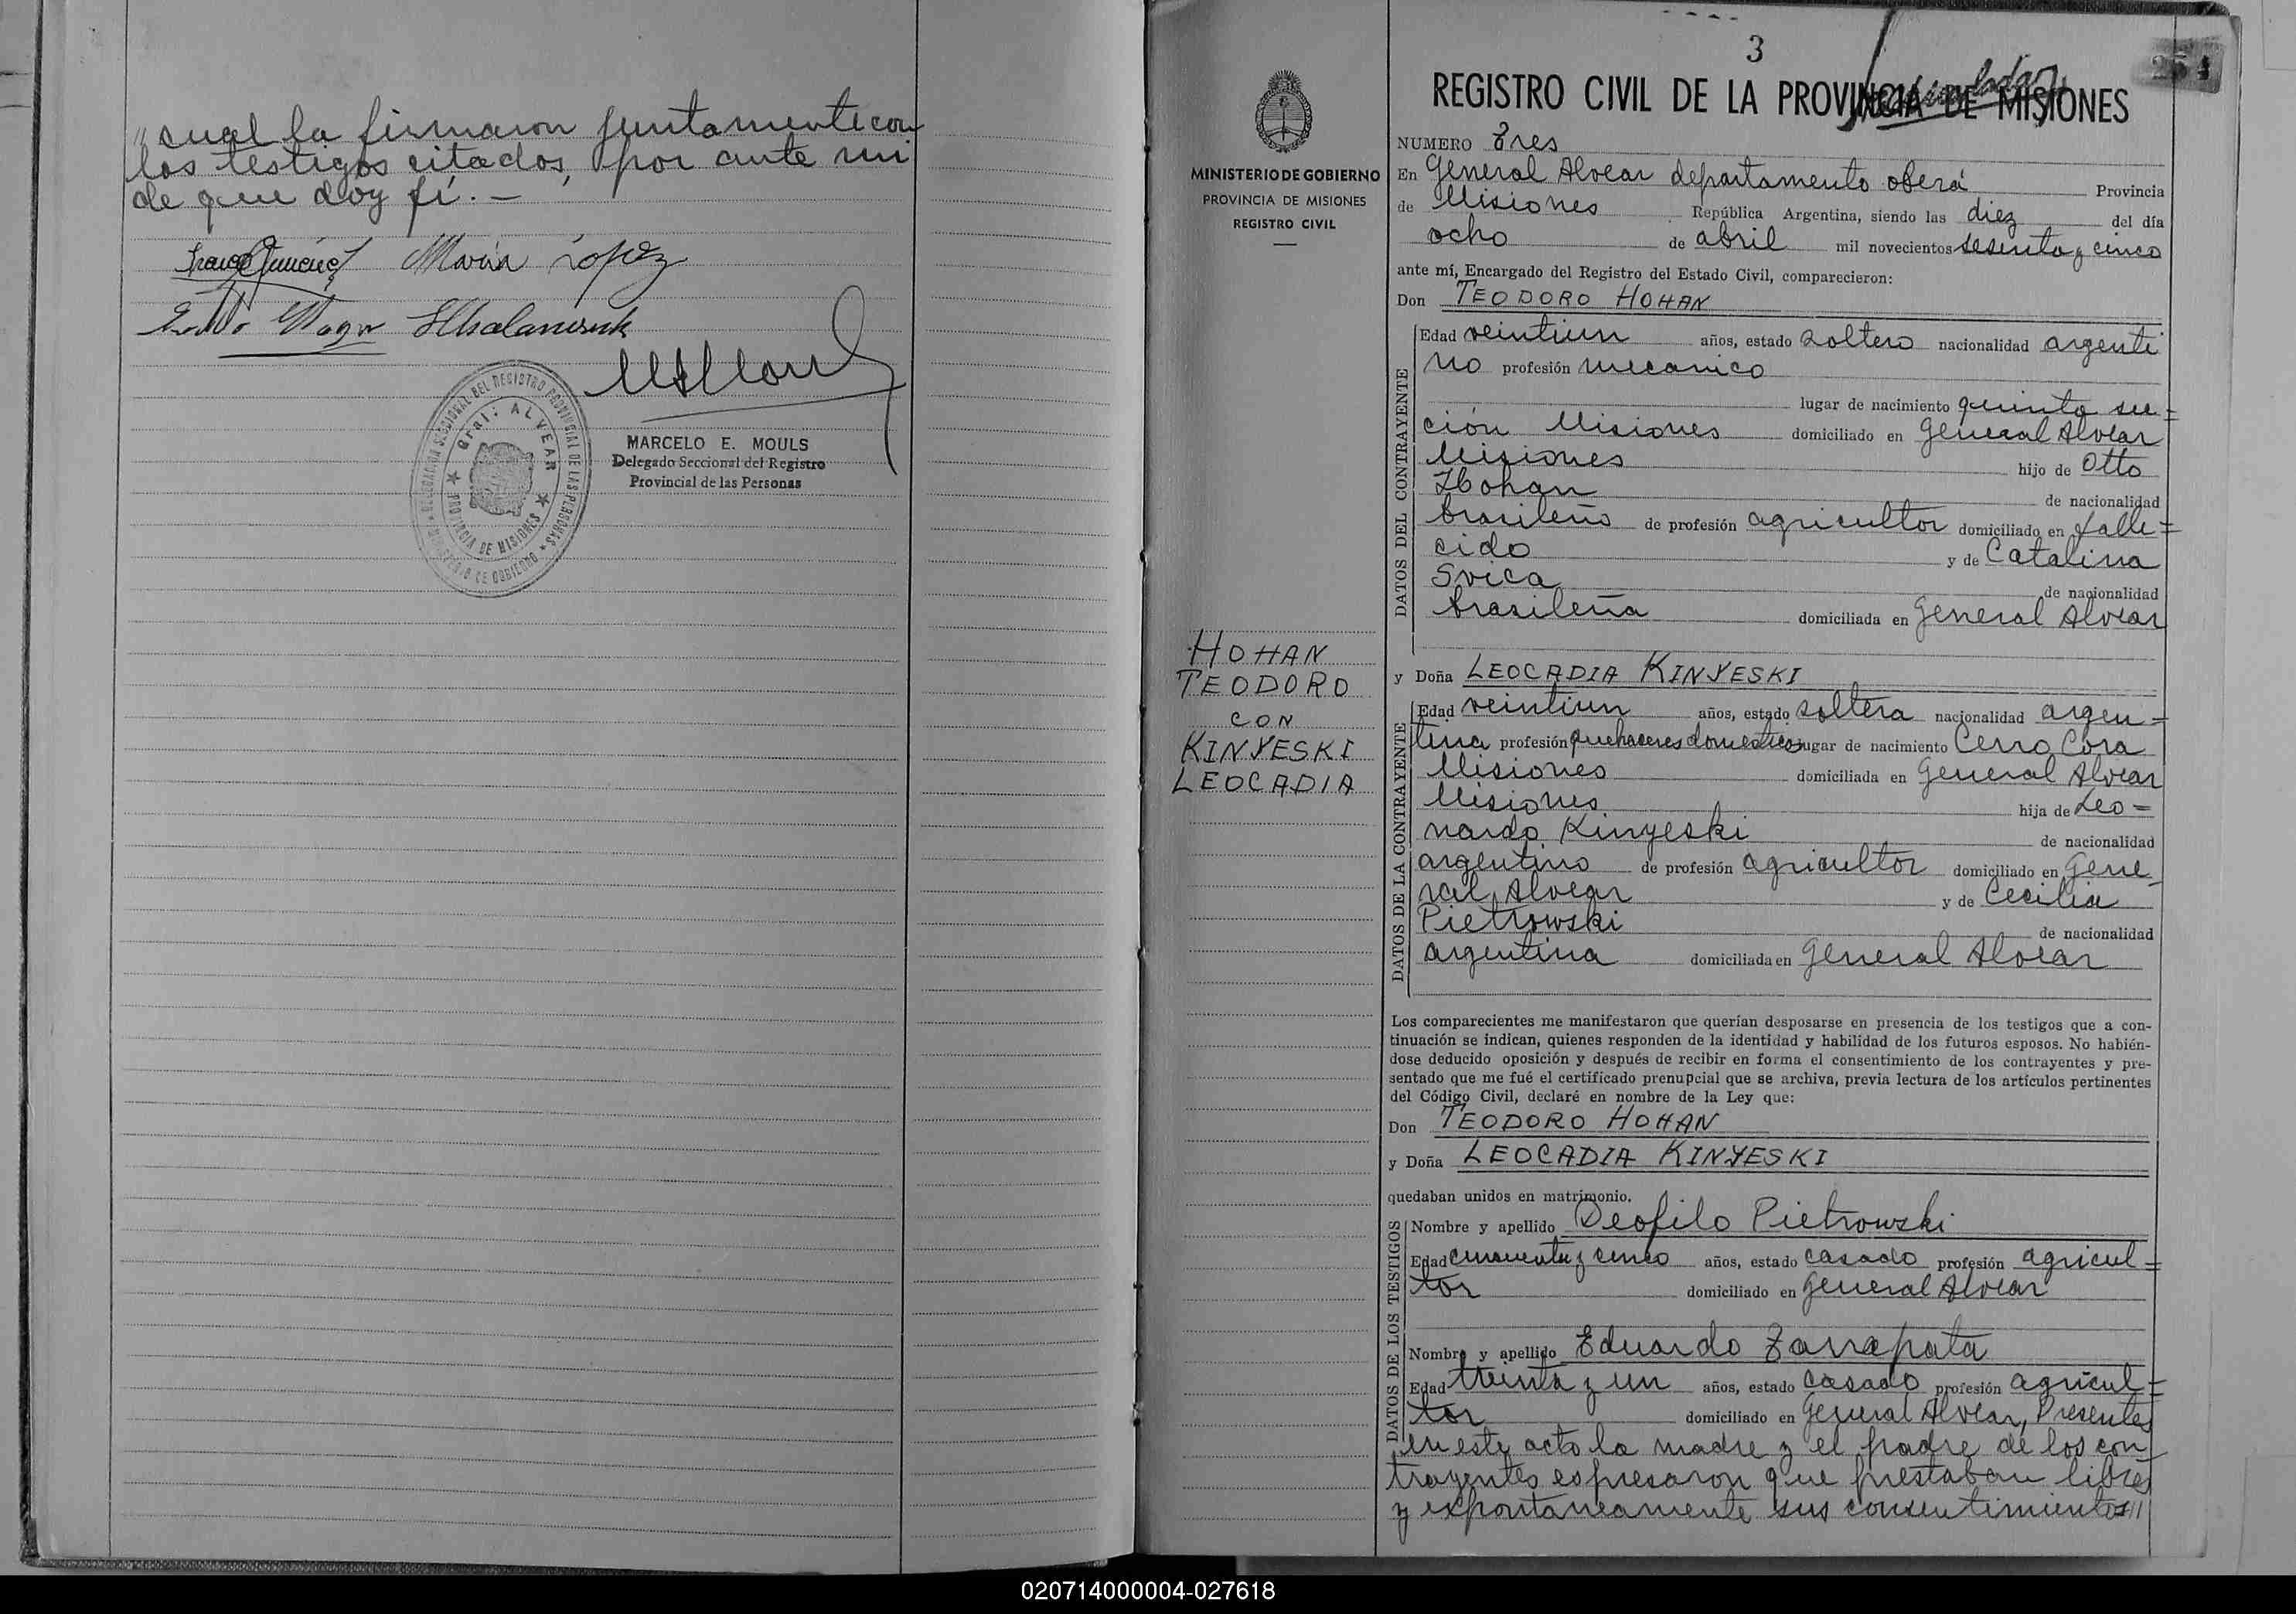 " cual la firmaron juntamente con
los testigos citados, por ante mi
de que doy fí. -
María López
MARCELO E. MOULS
Delegado Seccional del Registro
Provincial de las Personas
DELEGACION SECCIONAL DEL REGISTRO PROVINCIAL DE LAS PERSONAS
MINISTERIO DE GOBIERNO
Gral: ALVEAR
PROVINCIA DE MISIONES
3
254
REGISTRO CIVIL DE LA PROVINCIA DE MISIONES
MINISTERIO DE GOBIERNO
PROVINCIA DE MISIONES
REGISTRO CIVIL
HOHAN
TEODORO
CON
KINYESKI
LEOCADIA
NUMERO Tres
En General Alvear departamento oberá Provincia
de Misiones República Argentina, siendo las diez del día
ocho de abril mil novecientos sesenta y cinco
ante mí, Encargado del Registro del Estado Civil, comparecieron:
Don TEODORO HOHAN
DATOS DEL CONTRAYENTE
Edad veintiun años, estado soltero nacionalidad argenti
no profesión mecanico
lugar de nacimiento quinta sec=
ción Misiones domiciliado en General Alvear
Misiones hijo de Otto
Hohan de nacionalidad
brasileño de profesión agricultor domiciliado en falle=
cido y de Catalina
Svica de nacionalidad
brasileña domiciliada en General Alvear
y Doña LEOCADIA KINYESKI
DATOS DE LA CONTRAYENTE
Edad veintiun años, estado soltera nacionalidad argen=
tina profesión quehaceres domesticos lugar de nacimiento Cerro Cora
Misiones domiciliada en General Alvear
Misiones hija de Leo=
nardo Kinyeski de nacionalidad
argentino de profesión agricultor domiciliado en Gene_
ral Alvear y de Cecilia
Pietrowski de nacionalidad
argentina domiciliada en General Alvear
Los comparecientes me manifestaron que querían desposarse en presencia de los testigos que a con-
tinuación se indican, quienes responden de la identidad y habilidad de los futuros esposos. No habién-
dose deducido oposición y después de recibir en forma el consentimiento de los contrayentes y pre-
sentado que me fué el certificado prenupcial que se archiva, previa lectura de los artículos pertinentes
del Código Civil, declaré en nombre de la Ley que:
Don TEODORO HOHAN
y Doña LEOCADIA KINYESKI
quedaban unidos en matrimonio.
DATOS DE LOS TESTIGOS
Nombre y apellido Deofilo Pietrowski
Edad cincuenta y cinco años, estado casado profesión agricul=
tor domiciliado en General Alvear
Nombre y apellido Eduardo Zarrapata
Edad treinta y un años, estado casado profesión agricul=
tor domiciliado en General Alvear, Presentes
en este acto la madre y el padre de los con
trayentes espresaron que prestaban libre
y expontaneamente sus consentimientos///
020714000004-027618